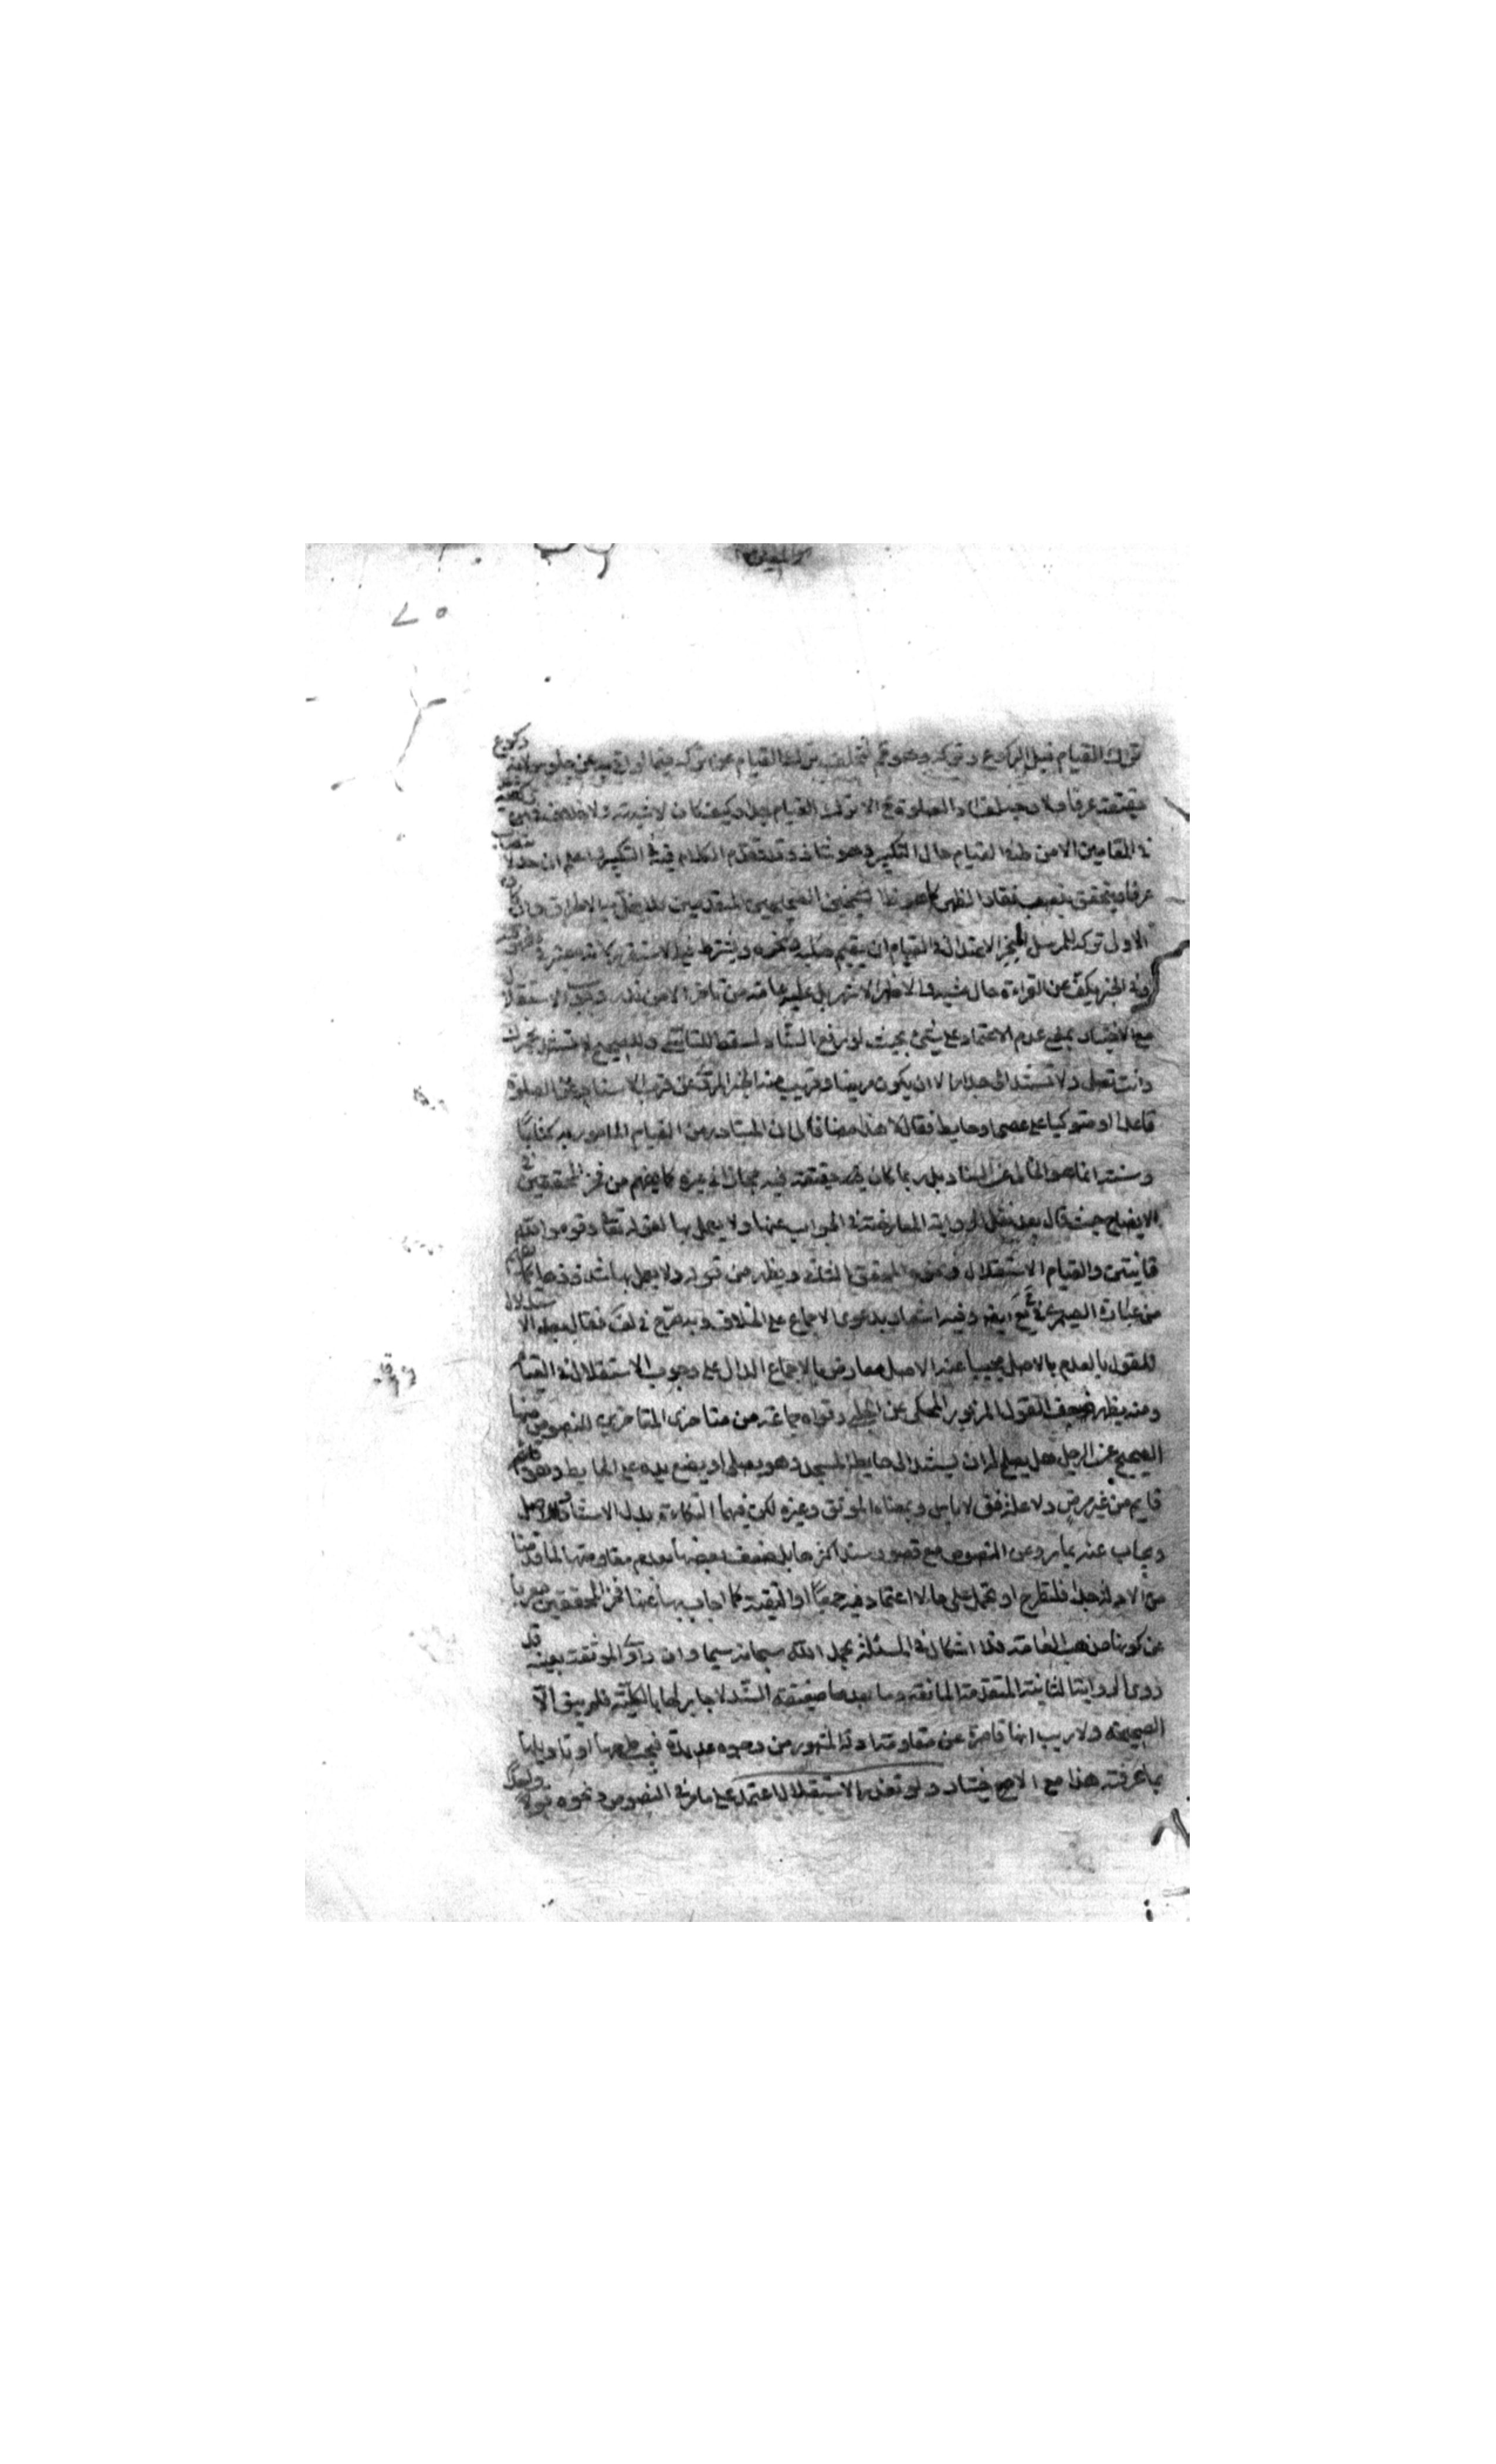 ترك القيام قبل الركوع وتركه وهو قم لتخلف ترك القيام عن تركه فيما لو اتى به عن جلوس لانه ركوع
حقيقة عرفا فلا وجه لفساد الصلوة ح الا ترك القيام جدا وكيف كان لا شبهة ولا خلاف في
في المقامين الا من طه القيام حال التكبير وهو شاذ وقد تقدم الكلام فيه في التكبير واعلم ان حد
عرفا ويتحقق بنصب فقار الظهر كما هو ظا الصحيحين المتقدمين فلا يخل به الاطراق وان كان
الاولى تركه للمرسل المفسر الاعتدال في القيام ان يقيم صلبه ونحره ويشترط فيه الاستقرار
وفي الخبر يكف عن القراءة حال مشيه والاظهر الاشهر بل عليه عامة من تاخر الا من ندر وجوب الاستقلال
مع الاختيار بمعنى عدم الاعتماد على شئ بحيث لو رفع السناد لسقط للتاسي وللصحيح لا تستند بخمرك
وانت تصلي ولا تستند الى جدار الا ان يكون مريضا وقريب منه الخبر المروي عن قرب الاسناد عن الصلوة
قاعدا او متوكيا على عصى او حايط فقال لا هذا مضافا الى ان المتبادر من القيام المامور به كتابا
وسنة انما هو الخالي عن السناد بل ربما كان حقيقة فيه مجازا في غيره كما يفهم من فخر المحققين في
الايضاح حيث قال بعد نقل الرواية المعارضة في الجواب عنها ولا يعمل بها لقوله تعالى وقوموا لله
قانتين والقيام الاستقلال ونحوه المحقق الثاني ويظهر من قوله ولا يعمل بها شذوذها كما يفهم
من عبارة الصيمري في ايضا وفيه اشعار بدعوى الاجماع على الخلاف وبه صرح في لف فقال بعد الاستدلال
للقول بالعدم بالاصل مجيبا عنه الاصل معارض بالاجماع الدال على وجوب الاستقلال في القيام
ومنه يظهر ضعف القول المزبور المحكي عن الحلبي وقواه جماعة من متاخري المتاخرين للنصوص منها
الصحيح عن الرجل هل يصلح له ان يستند الى حايط المسجد وهو يصلي او يضع يده على الحايط وهو
قايم من غير مرض ولا علة فق لا باس وبمعناه الموثق وغيره لكن فيهما التكاءة بدل الاستناد وللاصل
ويجاب عنه بما مر وعن النصوص مع قصور سند اكثرها بل ضعف بعضها بعدم مقاومتها لما قدمنا
من الادلة جدا فلتطرح او تحمل على ما لا اعتماد فيه جمعا او التقية كما اجاب بها عنها فخر المحققين معربا
عن كونها مذهب العامة فلا اشكال في المسئلة بحمد الله سبحانه سيما وان راوي الموثقة بعينه قد
روى الرواية الثانية المتقدمة المانعة وما بعدها ضعيفة السند لا جابر لها بالكلية فلم يبق الا
الصحيحة ولا ريب انها قاصرة عن مقاومة ادلة المشهور من وجوه عديدة فيجب طرحها او تاويلها
بما عرفته هذا مع الاختيار ولو تعذر الاستقلال اعتمد على ما مر في النصوص ونحوه